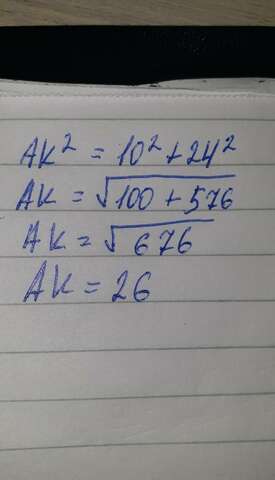 AK² = 10² + 24²
AK = √100 + 576
AK = √676
AK = 26